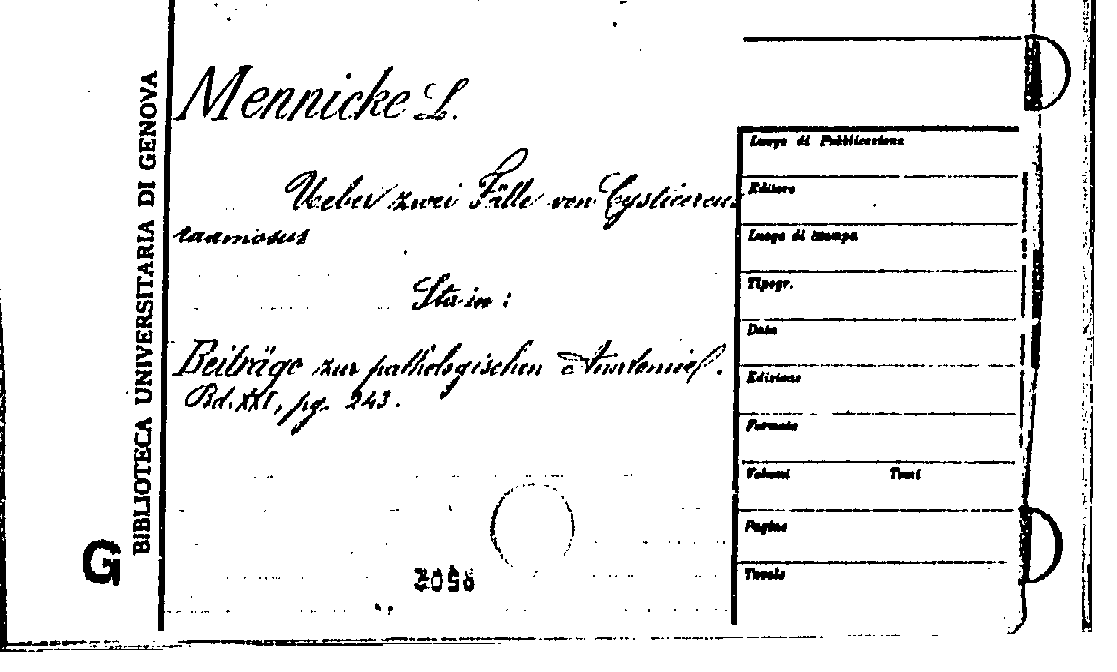 Mennicke L.
Ueber zwei Fälle von Cysticercus
racemosus
Sta in:
Beiträge zur pathologischen Anatomie.
Bd. XXI, pg. 243.
BIBLIOTECA UNIVERSITARIA DI GENOVA
G
Luogo di Pubblicazione
Editore
Luogo di stampa
Tipogr.
Data
Edizione
Formato
Volumi Tomi
Pagine
Tavole